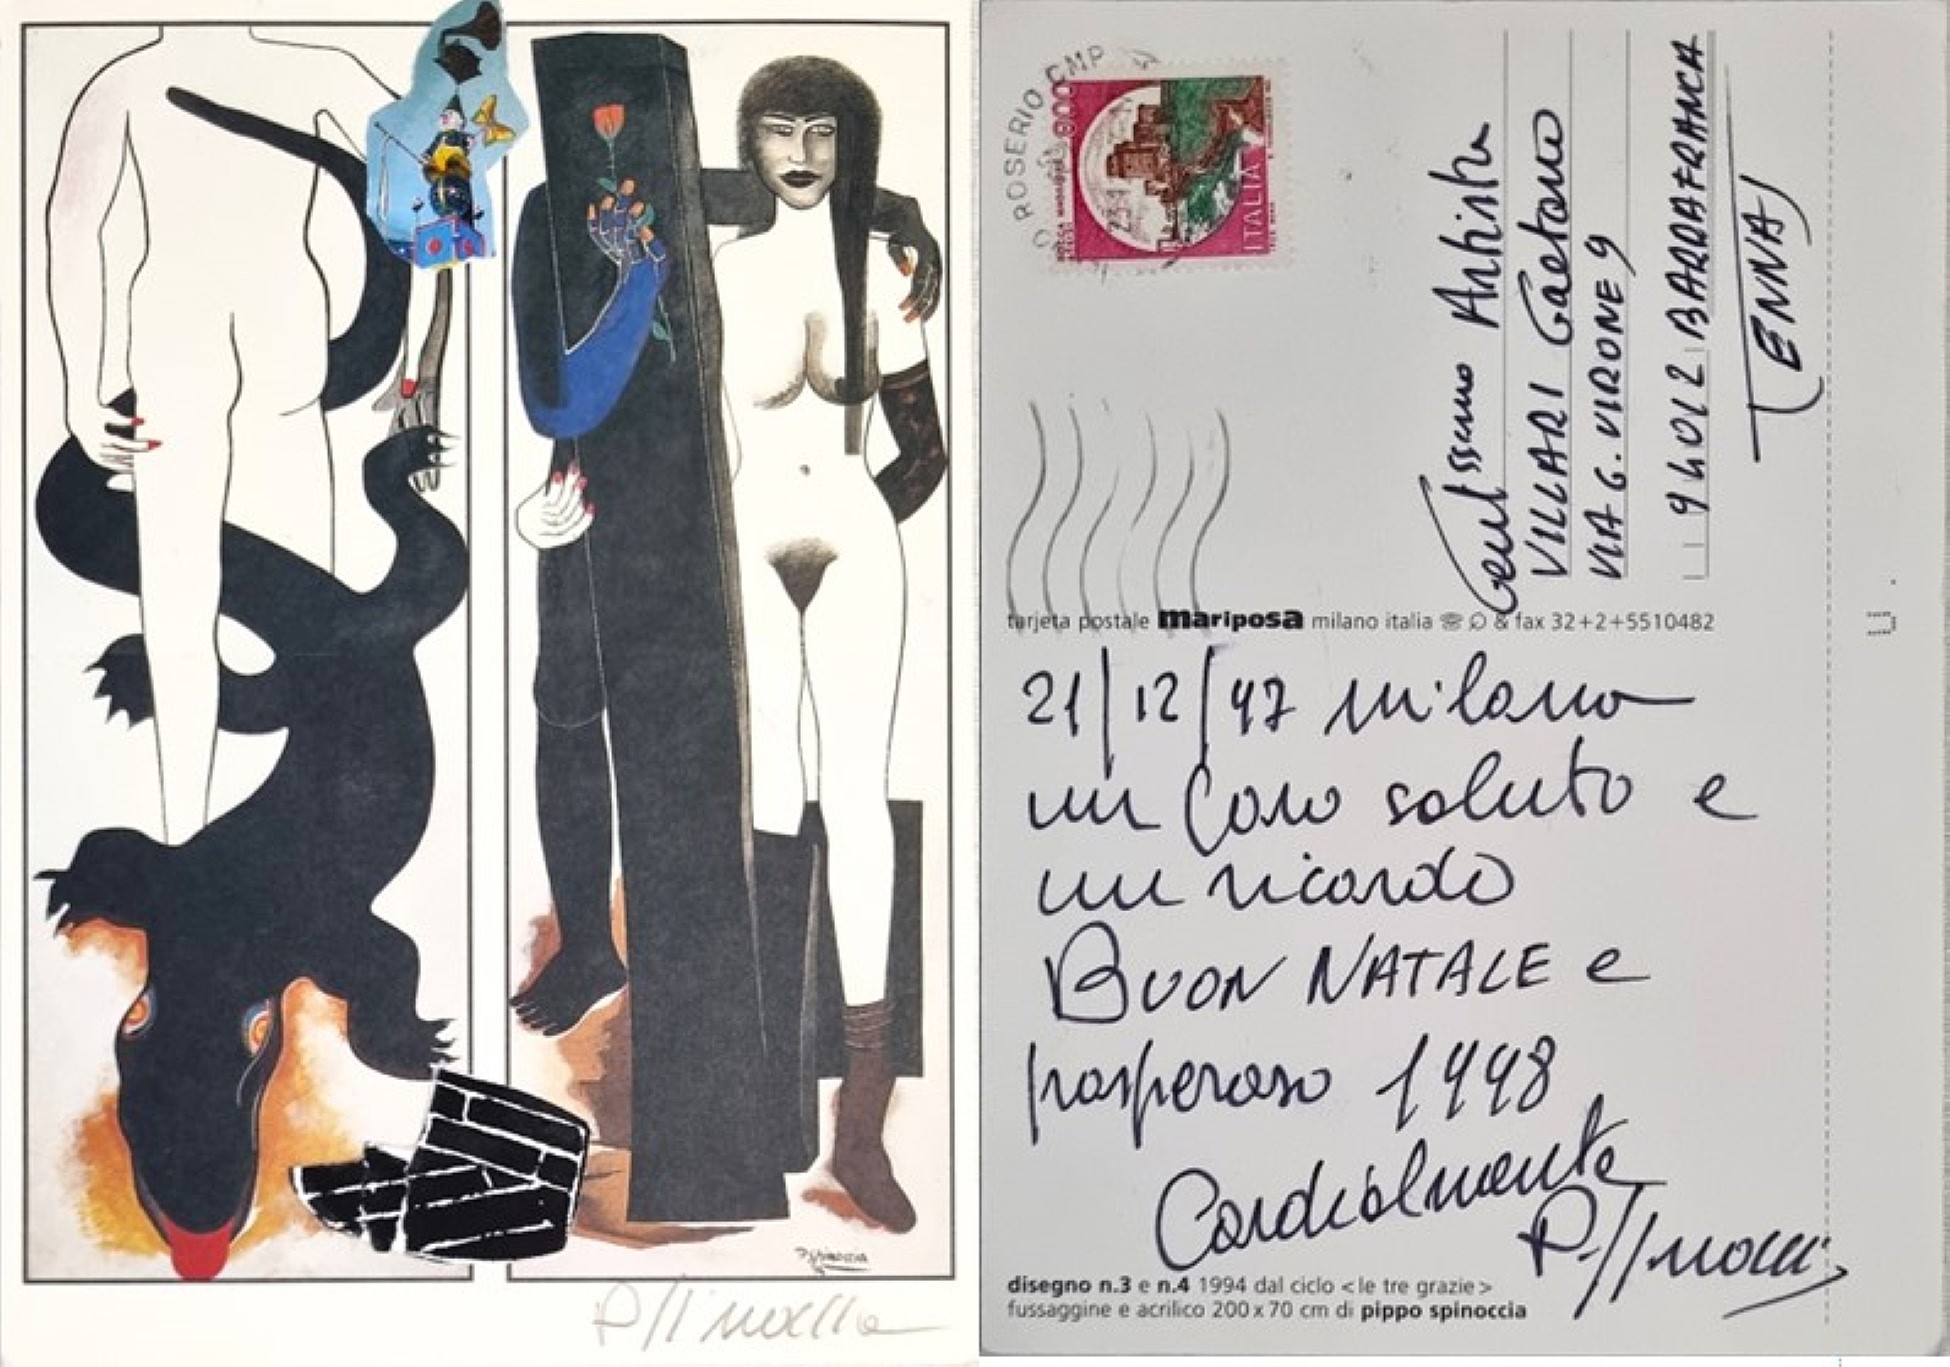 P. SPINOCCIA
P. Spinoccia
ROSERIO CMP
ITALIA
Gent.ssimo Artista
VILLARI Gaetano
VIA G. VIRONE 9
94012 BARRAFRANCA
(ENNA)
tarjeta postale mariposa milano italia & fax 32+2+5510482
21/12/97 Milano
un Caro saluto e
un ricordo
BUON NATALE e
prosperoso 1998
Cordialmente
P. Spinoccia
disegno n.3 e n.4 1994 dal ciclo <le tre grazie>
fussaggine e acrilico 200x70 cm di pippo spinoccia